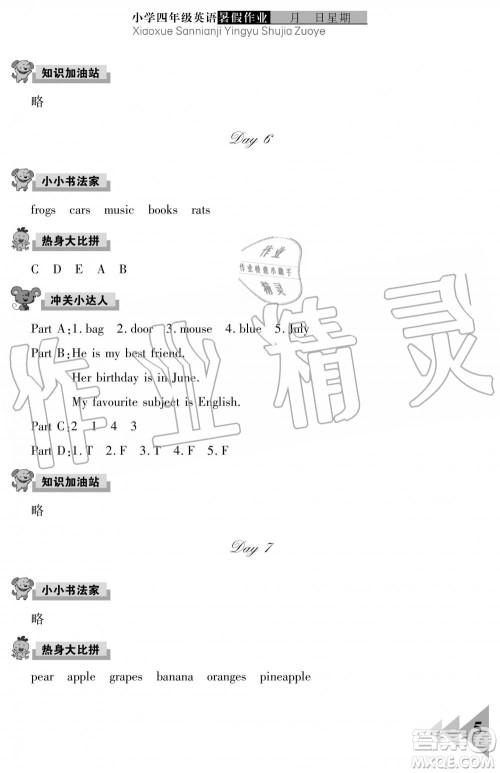 小学四年级英语暑假作业 月 日星期
Xiaoxue Sannianji Yingyu Shujia Zuoye
知识加油站
略
Day 6
小小书法家
frogs cars music books rats
热身大比拼
C D E A B
冲关小达人
Part A:1. bag 2. door 3. mouse 4. blue 5. July
Part B:He is my best friend.
Her birthday is in June.
My favourite subject is English.
Part C:2 1 4 3
Part D:1. T 2. F 3. F 4. F 5. F
知识加油站
略
Day 7
小小书法家
略
热身大比拼
pear apple grapes banana oranges pineapple
5
作业
作业检查小助手
精灵
作业精灵
答案圈
MXQE.COM